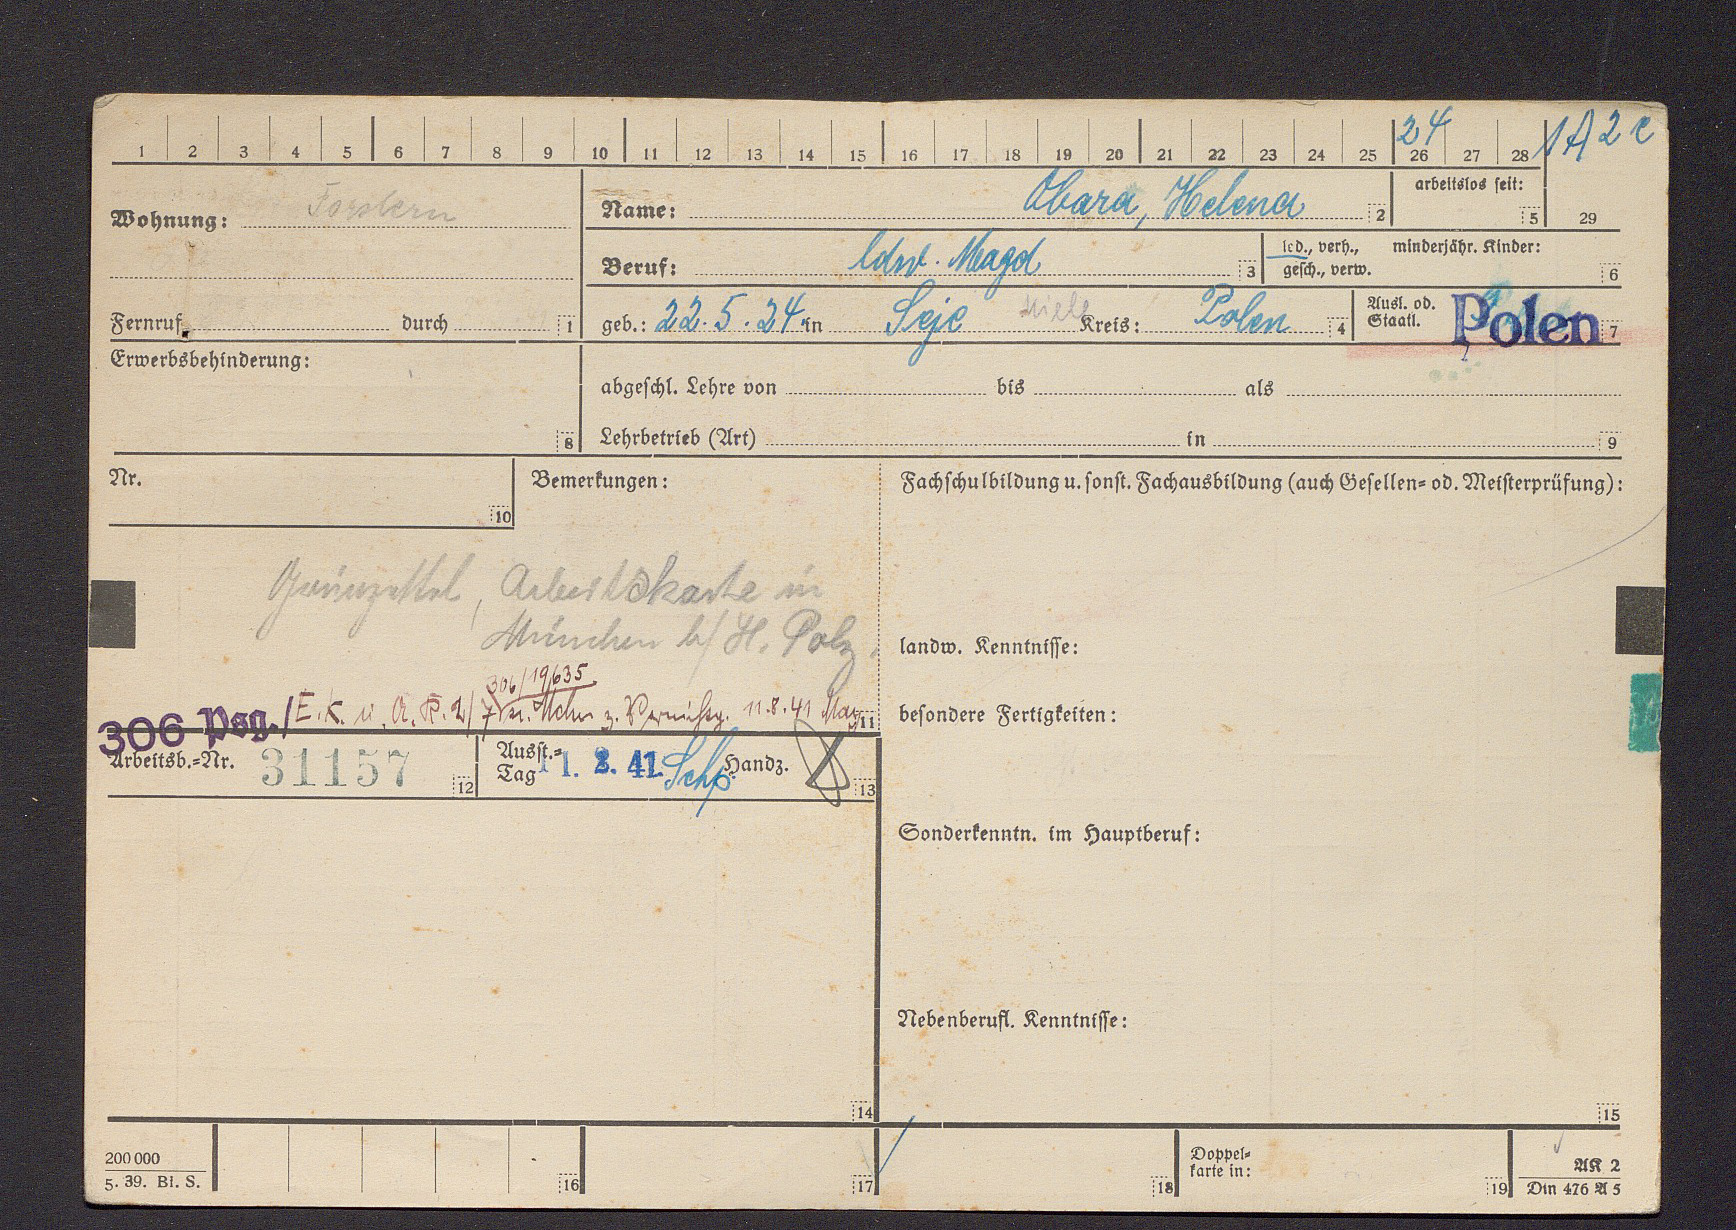 1 2 3 4 5 6 7 8 9 10 11 12 13 14 15 16 17 18 19 20 21 22 23 24 25 26 27 28
24 1A2c
Wohnung: Forstern
Name: Obara, Helena 2
arbeitslos seit: 5
29
Beruf: ldw. Magd 3
led., verh., gesch., verw.
minderjähr. Kinder: 6
Fernruf durch 1
geb.: 22.5.24 in Seje Kreis: Polen 4
Ausl. od. Staatl. Polen 7
Erwerbsbehinderung: 8
abgeschl. Lehre von bis als
Lehrbetrieb (Art) in 9
Nr. 10
Bemerkungen:
Fachschulbildung u. sonst. Fachausbildung (auch Gesellen- od. Meisterprüfung):
Grünzettel, Arbeitskarte in
München b/ H. Polz.
306/19635
306 Psg. / E.K. u. A.K. 2/ 11.8.41 11
landw. Kenntnisse:
besondere Fertigkeiten:
Arbeitsb.-Nr. 31157 12
Ausst.-Tag 11. 8. 41 Handz. 13
Sonderkenntn. im Hauptberuf:
Nebenberufl. Kenntnisse:
14
15
200 000
5. 39. Bl. S.
16
17
18
Doppel-
karte in:
19
AK 2
Din 476 A 5